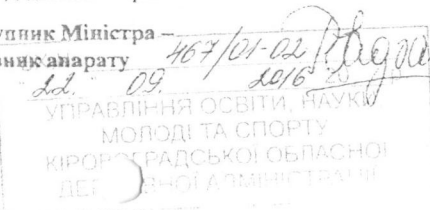 упник Міністра –
вник апарату 467/01-02
22. 09. 2016
УПРАВЛІННЯ ОСВІТИ, НАУКИ
МОЛОДІ ТА СПОРТУ
КІРОВОГРАДСЬКОЇ ОБЛАСНОЇ
ДЕРЖАВНОЇ АДМІНІСТРАЦІЇ